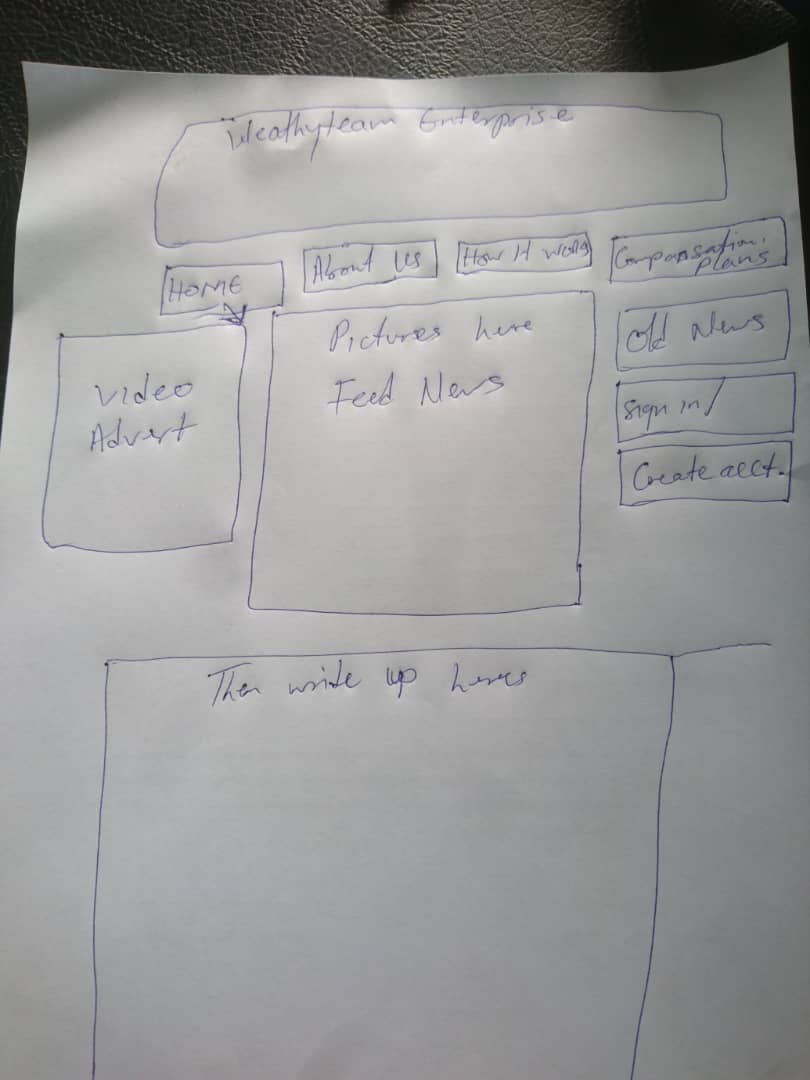 Weathyteam Enterprise
HOME
About Us
How It works
Compansation
plans
Video
Advert
Pictures here
Feed News
Old News
Sign in/
Create acct.
Then write up here